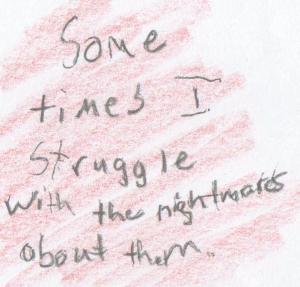 Some
times I
struggle
with the nightmares
about them.